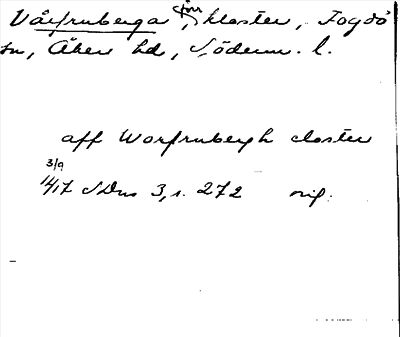 Vårfruberga, förr kloster, Fogdö
sn, Åkers hd, Söderm. l.
aff Worfrubergh closter
3/9
1417 SDns 3, s. 272 orig.